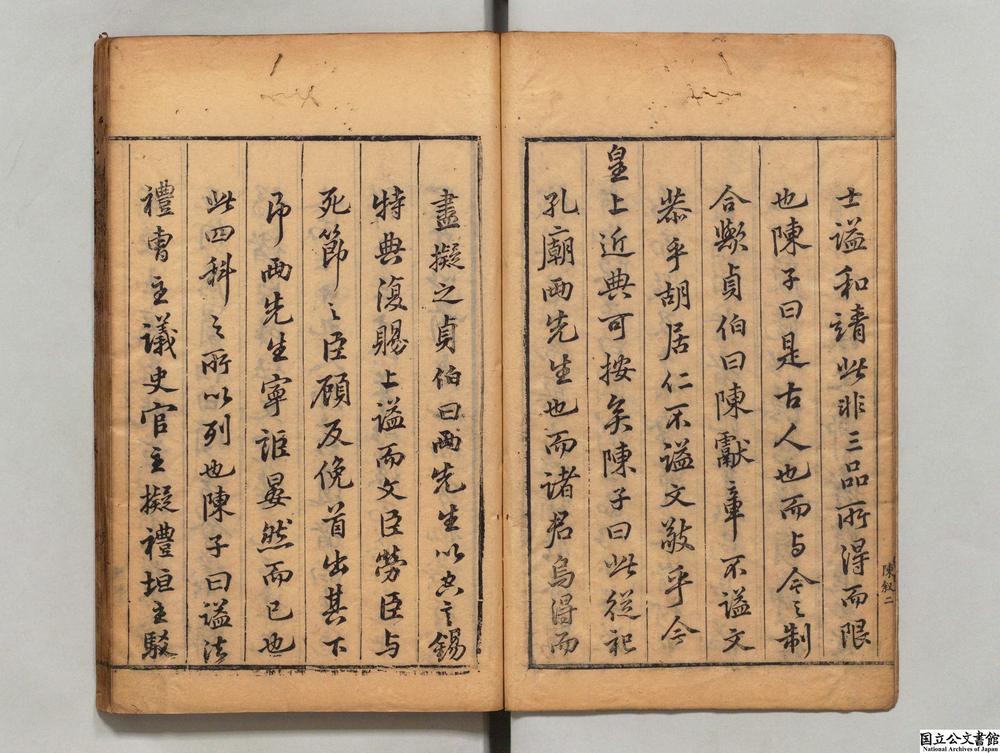 士謚和靖此非三品所得而限
也陳子曰是古人也而与今之制
合歟貞伯曰陳獻章不謚文
恭乎胡居仁不謚文敬乎今
皇上近典可按矣陳子曰此從祀
孔廟両先生也而諸君烏得而
陳叙二
盡擬之貞伯曰両先生以之錫
特典復賜上謚而文臣勞臣与
死節之臣顧反俛首出其下
即両先生寧詎晏然而已也
此四科之所以列也陳子曰謚法
禮曹主議史官主擬禮垣主駁
国立公文書館
National Archives of Japan